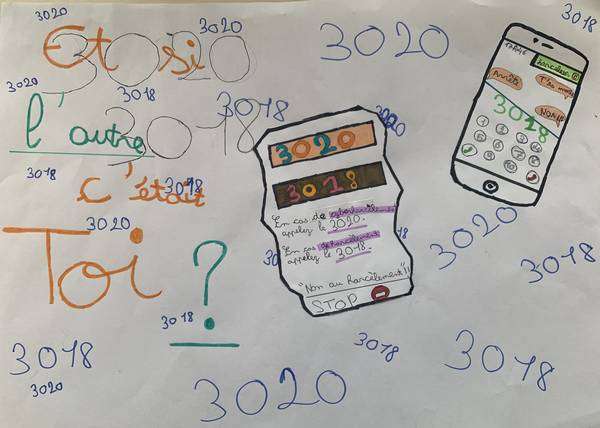 3020
3020
3018
3020
Et si
3020
3020
3018
3018
3018
l'autre
3018
3020
3018
3018
c'était
3020
Toi
?
3018
3018
3020
3020
3018
3018
3020
3018
3020
3018
En cas de cyberharcèlement
appelez le 2020.
En cas de harcèlement
appelez le 3018.
"Non au harcèlement"!!
STOP
Arrête
NON!!!
3018
1
2
3
3020
3018